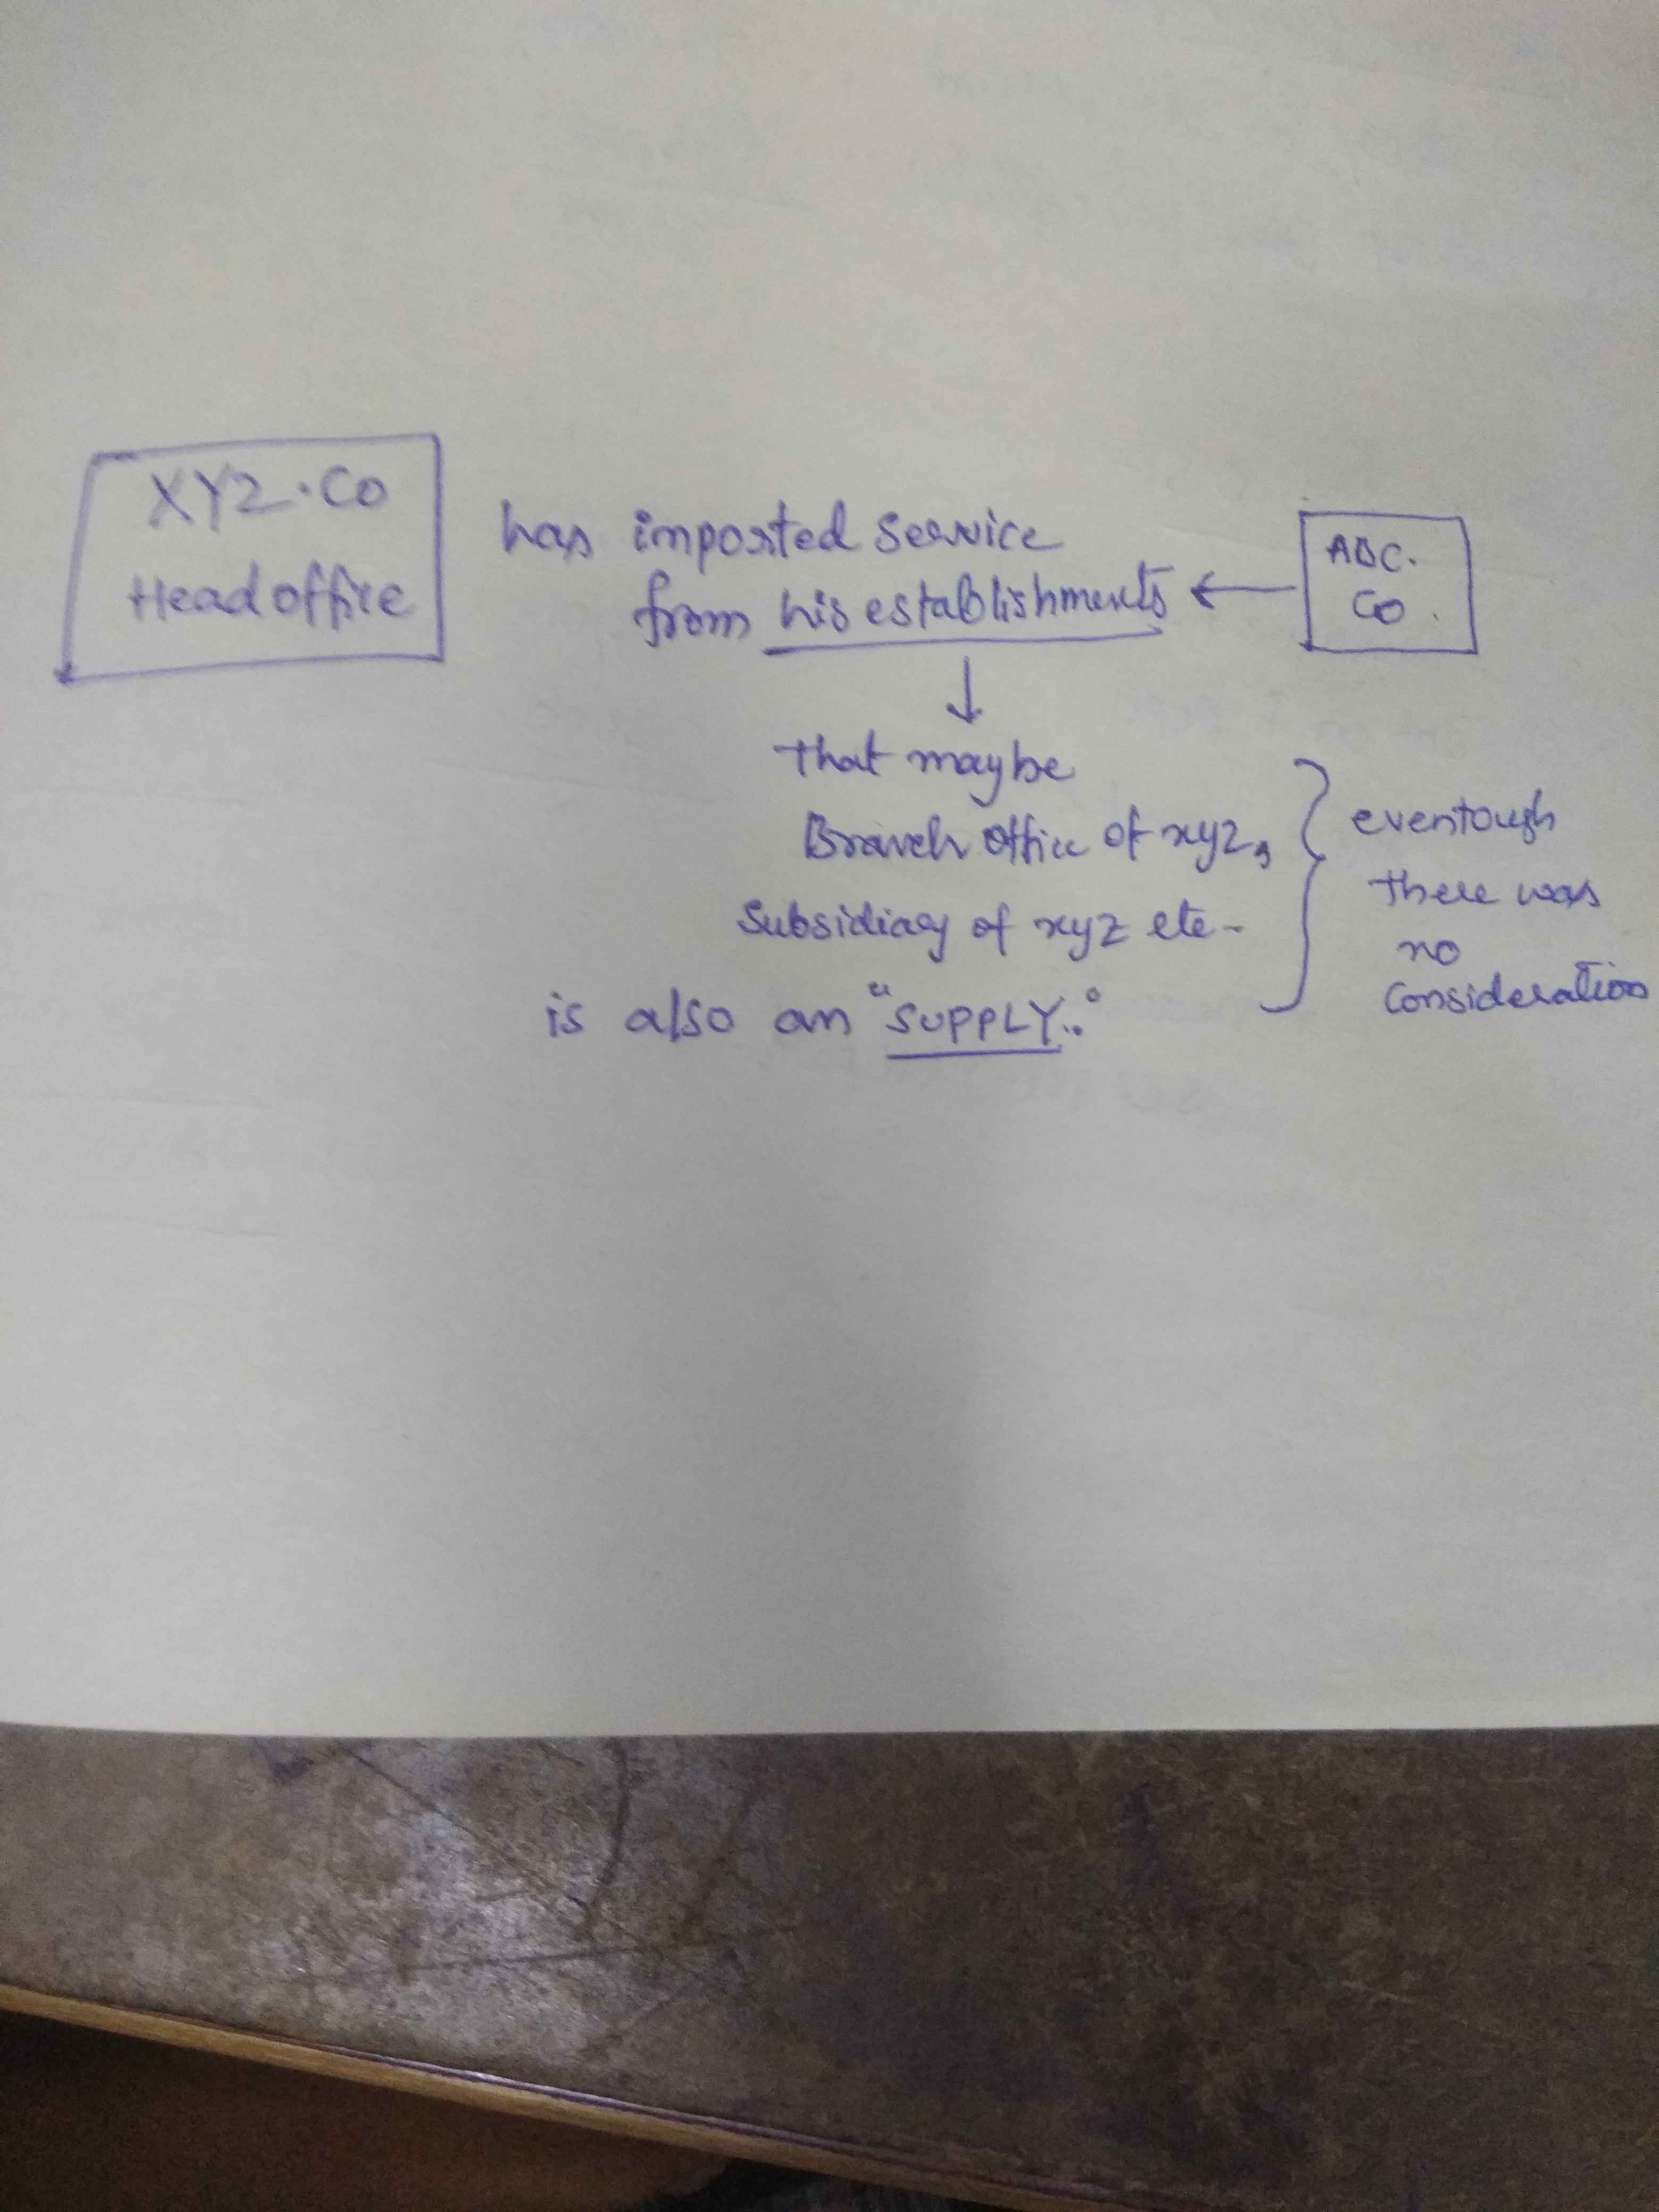 XYZ. Co
Head office
has imported service
from his establishments
ABC.
Co.
That maybe
Branch office of xyz,
Subsidiary of xyz etc-
eventough
there was
no
consideration
is also an "SUPPLY.."